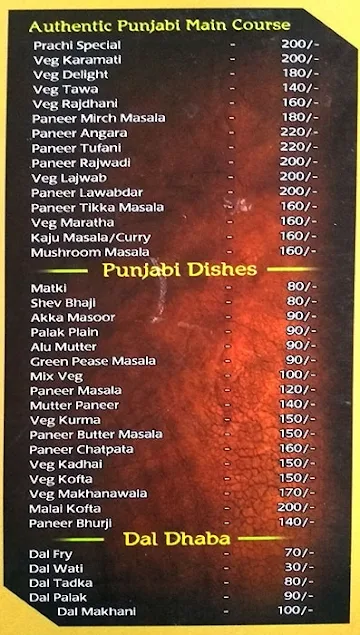 Authentic Punjabi Main Course
Prachi Special - 200/-
Veg Karamati - 200/-
Veg Delight - 180/-
Veg Tawa - 140/-
Veg Rajdhani - 160/-
Paneer Mirch Masala - 180/-
Paneer Angara - 220/-
Paneer Tufani - 220/-
Paneer Rajwadi - 200/-
Veg Lajwab - 200/-
Paneer Lawabdar - 200/-
Paneer Tikka Masala - 160/-
Veg Maratha - 160/-
Kaju Masala/Curry - 160/-
Mushroom Masala - 160/-
Punjabi Dishes
Matki - 80/-
Shev Bhaji - 80/-
Akka Masoor - 90/-
Palak Plain - 90/-
Alu Mutter - 90/-
Green Pease Masala - 90/-
Mix Veg - 100/-
Paneer Masala - 120/-
Mutter Paneer - 140/-
Veg Kurma - 150/-
Paneer Butter Masala - 150/-
Paneer Chatpata - 160/-
Veg Kadhai - 150/-
Veg Kofta - 150/-
Veg Makhanawala - 170/-
Malai Kofta - 200/-
Paneer Bhurji - 140/-
Dal Dhaba
Dal Fry - 70/-
Dal Wati - 30/-
Dal Tadka - 80/-
Dal Palak - 90/-
Dal Makhani - 100/-